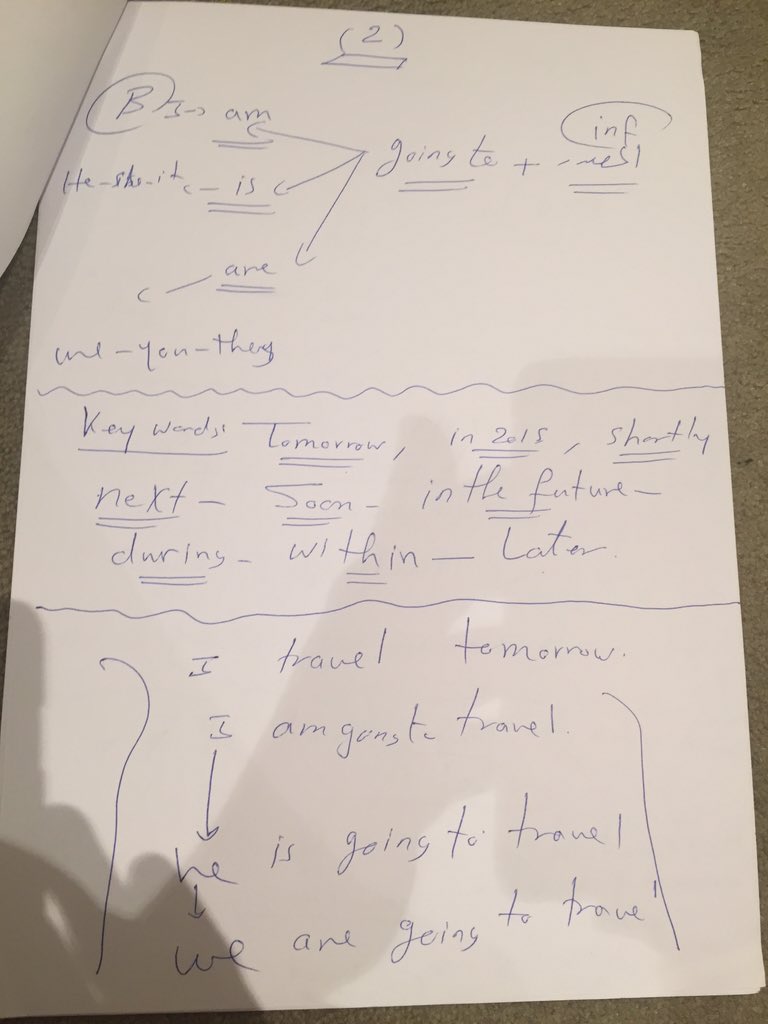 (2)
B I → am
inf
going to +
He-she-it - is
are
we-you-they
Key words: Tomorrow, in 2015, shortly
next - Soon - in the future -
during - within - Later.
I travel tomorrow.
I am gongto travel.
he is going to travel
we are going to travel